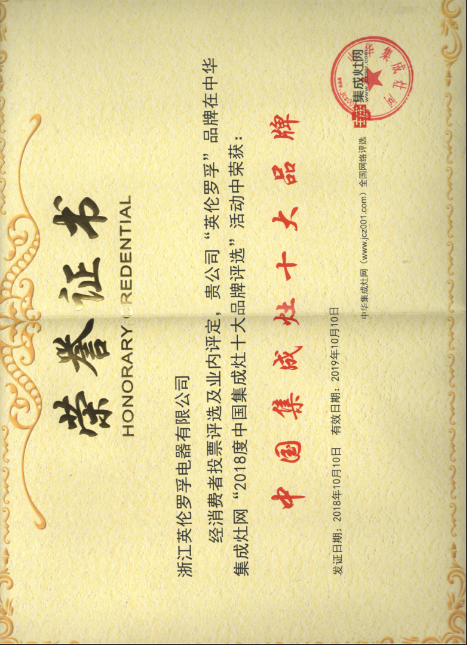 荣誉证书
HONORARY CREDENTIAL
浙江英伦罗孚电器有限公司
经消费者投票评选及业内评定，贵公司“英伦罗孚”品牌在中华
集成灶网“2018度中国集成灶十大品牌评选”活动中荣获：
中国集成灶十大品牌
发证日期：2018年10月10日 有效日期：2019年10月10日
中华集成灶网（www.jcz001.com）全国网络评选
集成灶网
中华集成灶网